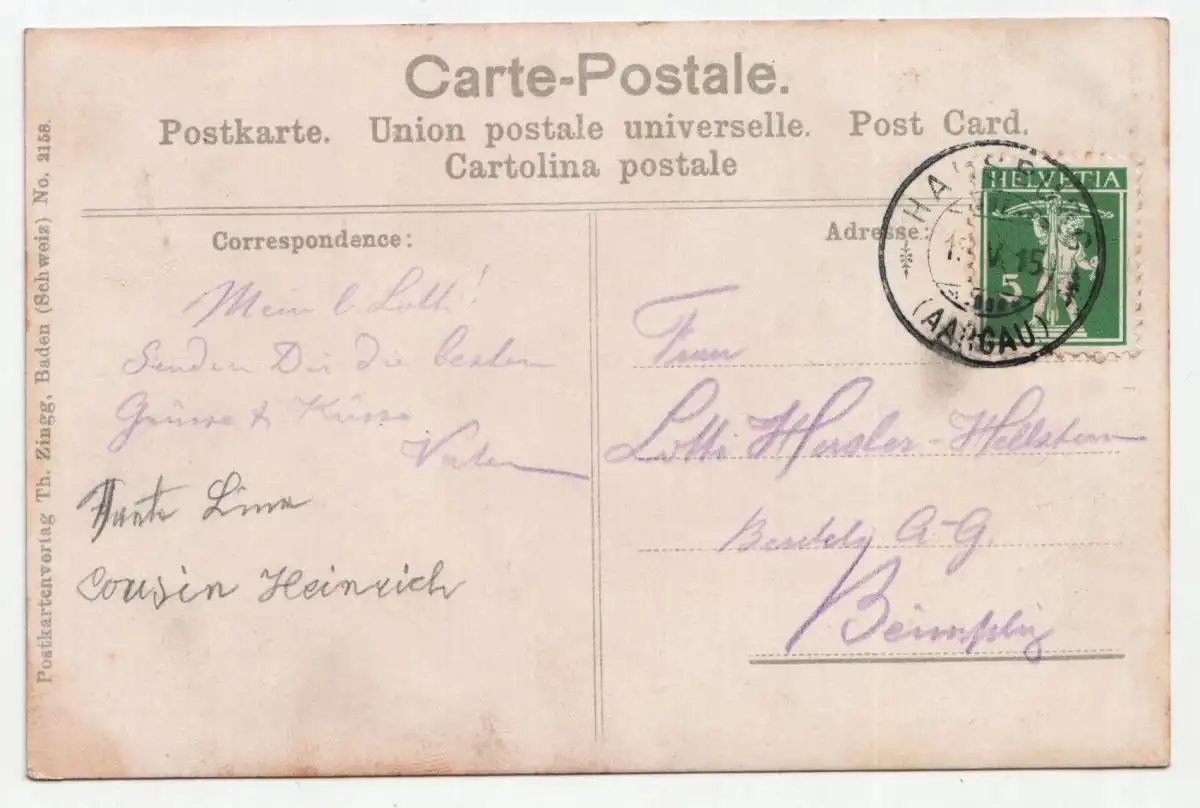 Carte-Postale.
Postkarte. Union postale universelle. Post Card.
Cartolina postale
Correspondence:
Mein l. Lotti!
Senden Dir die besten
Grüsse & Küsse
Vater
Tante Lina
Cousin Heinrich
Adresse:
Frau
Lotti
A-G
HELVETIA
5
HABSBURG
V. 15
(AARGAU)
Postkartenverlag Th. Zingg, Baden (Schweiz) No. 2158.